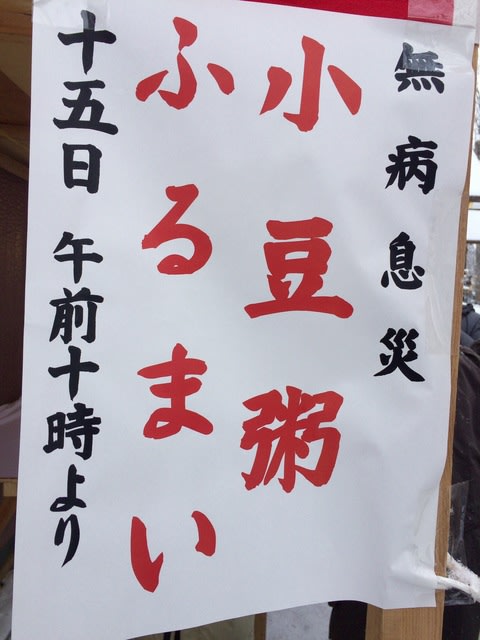 無病息災
小豆粥
ふるまい
十五日 午前十時より